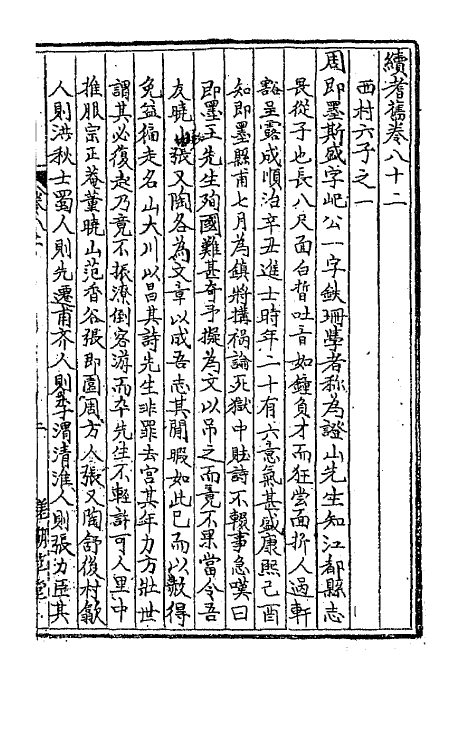 續耆舊卷八十二
西村六子之一
周即墨斯盛字屺公一字鉄珊學者称為證山先生知江都縣志
畏從子也長八尺面白晳吐音如鍾負才而狂嘗面折人過軒
豁呈露成順治辛丑進士時年二十有六意氣甚盛康熙己酉
知即墨縣甫七月為鎮將搆禍論死獄中賍詩不輟事急嘆曰
即墨王先生殉國難甚奇予擬為文以吊之而竟不果當令吾
友曉山張又陶各為文章以成吾志其閒暇如此已而以赦得
免益徧走名山大川以昌其詩先生非罪去官其年力方壯世
謂其必復起乃竟不振潦倒客游而卒先生不輕許可人里中
推服宗正菴董曉山范香谷張即園周方人張又陶舒後村歙
人則洪秋士蜀人則先遷甫齐人則李渭清淮人則張力臣其